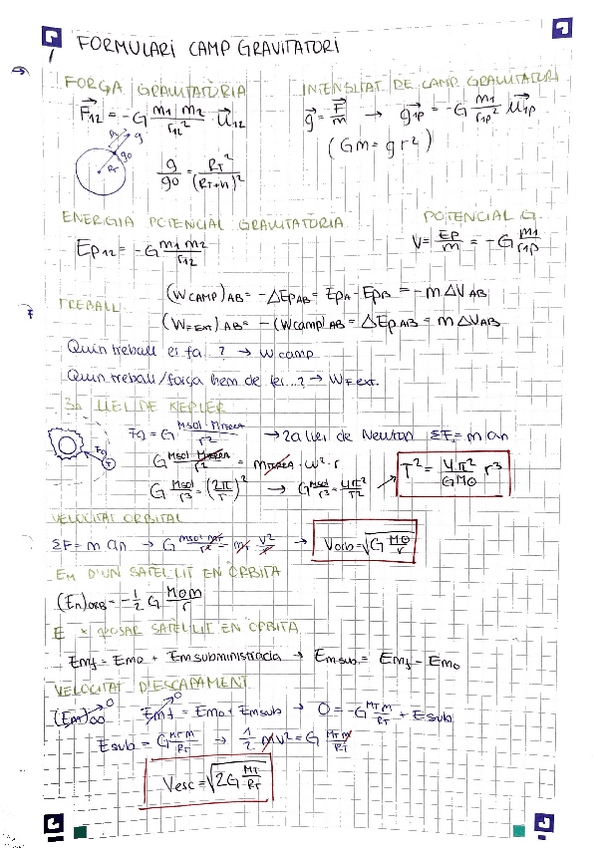 FORMULARI CAMP GRAVITATORI
FORÇA GRAVITATÒRIA
INTENSITAT DE CAMP GRAVITATORI
F₁₂ = -G m₁ m₂ / r₁₂² · u₁₂
g = F/m → g₁p = -G m₁ / r₁p² u₁p
(Gm = g r²)
g / g₀ = RT² / (RT+h)²
g
g₀
RT
ENERGIA POTENCIAL GRAVITATÒRIA
POTENCIAL G.
Ep₁₂ = -G m₁ m₂ / r₁₂
V = Ep/m = -G m₁ / r₁p
TREBALL
(W CAMP)AB = -ΔEpAB = EpA - EpB = -m ΔVAB
(W F.EXT)AB = -(Wcamp)AB = ΔEpAB = m ΔVAB
Quin treball es fa...? → W camp
Quin treball/força hem de fer...? → W F ext.
3a LLEI DE KEPLER
Fg = G Msol · MTERRA / r² → 2a llei de Newton ΣF = m an
Fg
T
G Msol · MTERRA / r² = MTERRA · ω² · r
G Msol / r³ = (2π / T)² → G Msol / r³ = 4π² / T² → T² = 4π² / GM⊙ r³
VELOCITAT ORBITAL
ΣF = m an → G Msol · mT / r² = mT v² / r → Vorb = √(G M⊙ / r)
Em D'UN SATÈL·LIT EN ÒRBITA
(Em)ORB = -1/2 G M⊙m / r
E x POSAR SATÈL·LIT EN ÒRBITA
Emf = Em₀ + Em subministrada → Em sub. = Emf - Em₀
VELOCITAT D'ESCAPAMENT
(Em)∞ 0 Emf 0 = Em₀ + Em sub → 0 = -G MT m / RT + E sub
E sub = G MT m / RT → 1/2 m v² = G MT m / RT
Vesc = √(2G MT / RT)